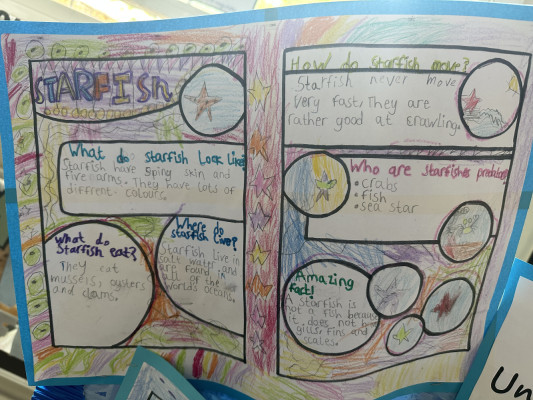 STARFISH
What do starfish Look like?
Starfish have spiny skin and
five arms. They have lots of
diffrent colours.
What do
Starfish eat?
They eat
mussels, oysters
and clams.
Where do
starfish live?
Starfish live in
salt water and
are found in
all of the
worlds oceans.
How do starfish move?
Starfish never move
very fast. They are
rather good at crawling.
Who are starfishes predators?
• crabs
• fish
• sea star
Amazing
fact!
A starfish is
not a fish because
it does not
gills, fins and
scales.
Un